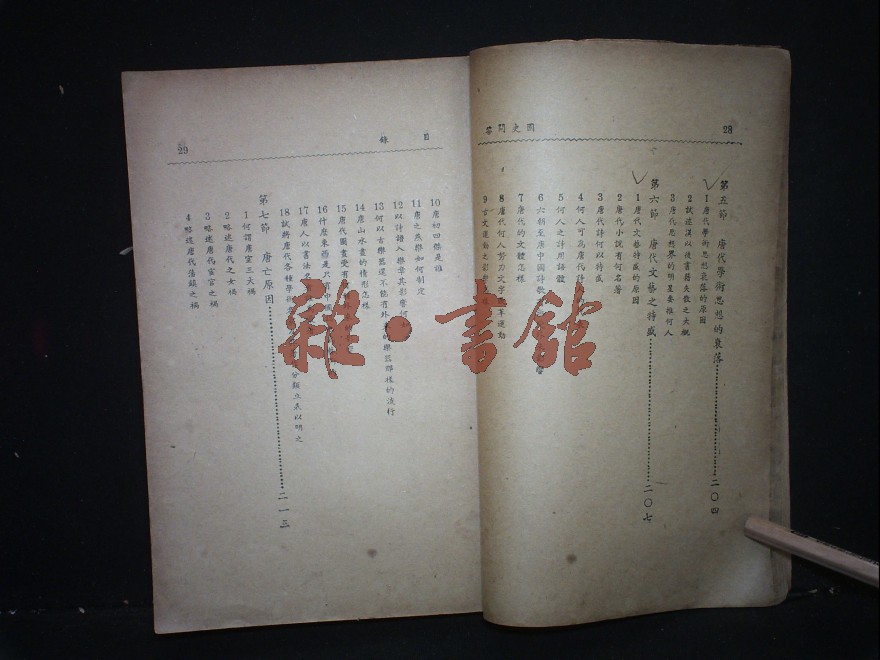 28
國史問答
第五節 唐代學術思想的衰落 二〇四
1 唐代學術思想衰落的原因
2 試從漢以後書籍失散之大概
3 唐代思想界的明星要推何人
第六節 唐代文藝之特盛 二〇七
1 唐代文藝特盛的原因
2 唐代小說有何名著
3 唐代詩何以特盛
4 何人可為唐代詩
5 何人之詩用語體
6 六朝至唐中國詩歌
7 唐代的文體怎樣
8 唐代何人努力文字改革運動
9 古文運動之影響
目錄
29
10 唐初四傑是誰
11 唐之燕樂如何制定
12 以詩譜入樂章其影響何
13 何以古樂器還不能有外來的樂器那樣的流行
14 唐山水畫的情形怎樣
15 唐代圖畫受有
16 什麼東西是只有中國
17 唐人以書法名
18 試將唐代各種學術 分類立表以明之
第七節 唐亡原因 二一三
1 何謂唐室三大禍
2 略述唐代之女禍
3 略述唐代宦官之禍
4 略述唐代藩鎮之禍
雜·書館